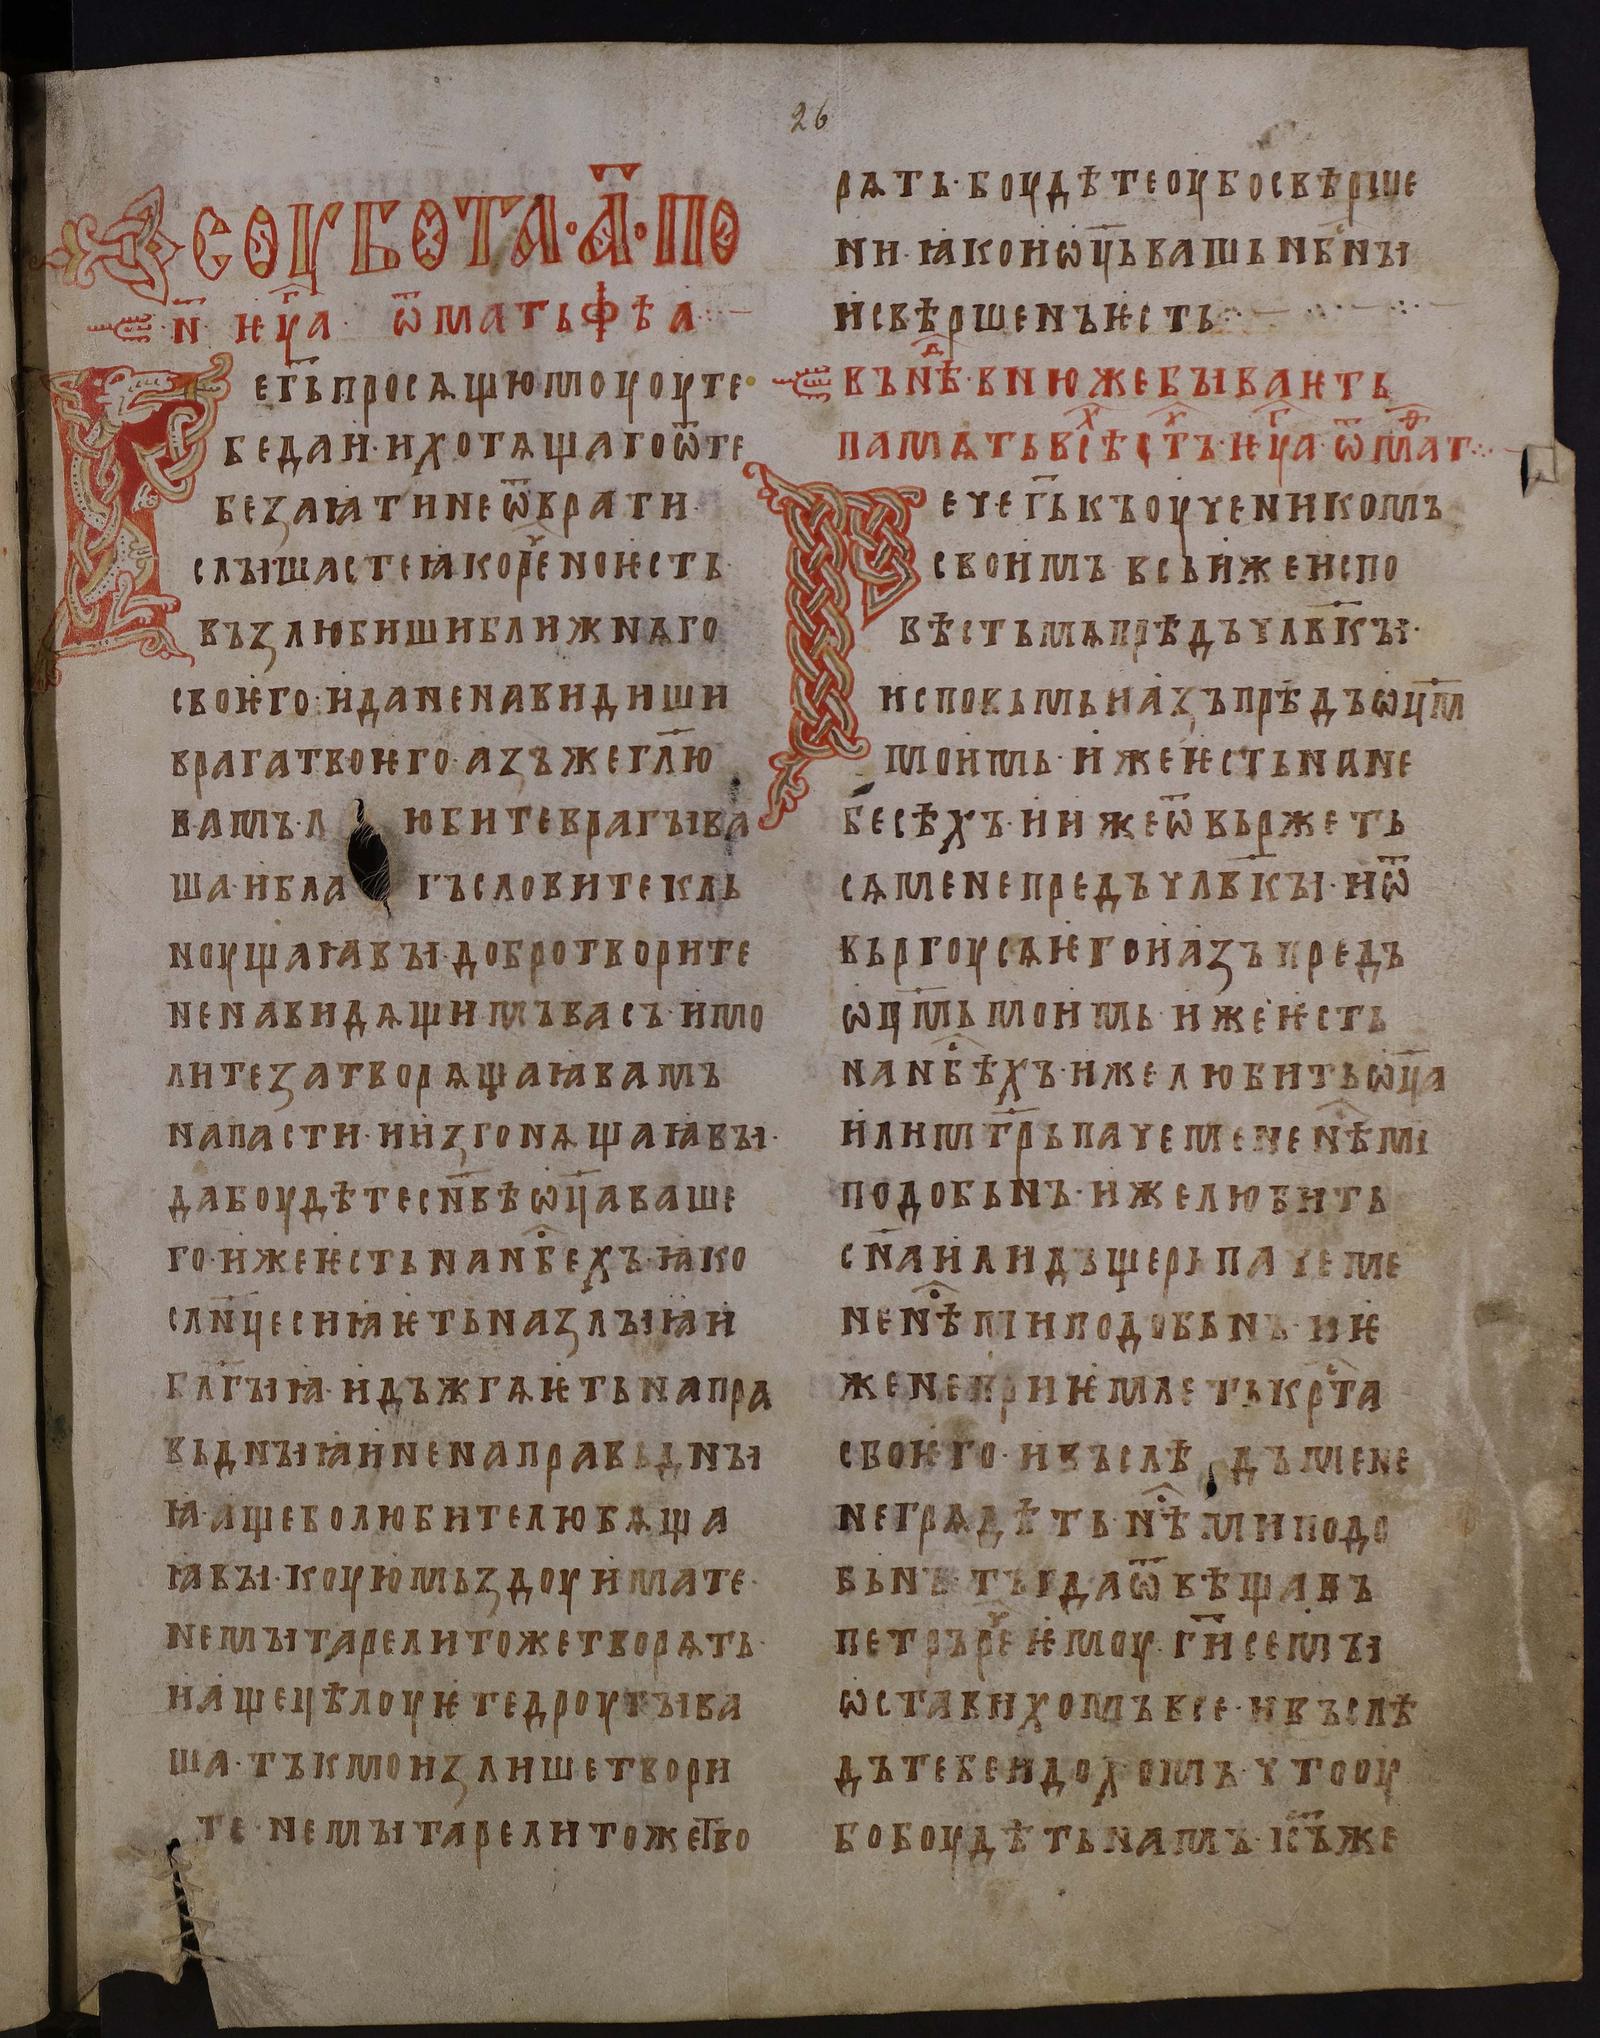 26
СОУБОТА·А҃·ПО
Н҃· ѤУ҃А· Ѿ МАТЬФѢА
Рег҃ьпросѧщюмоуоуте
бедаи·ихотѧщагоѿте
беꙁаꙗтинеѿврати
слꙑшастеꙗкореⷱ҇ноѥсть
въꙁлюбишиближнѧго
своѥго·иданенавидиши
врагатвоѥго·аꙁъжегл҃ю
вамъ·любитеврагꙑва
ша·иблагъсловитекль
ноущаꙗвꙑ·добротворите
ненавидѧщимъвасъ·имо
литеꙁатворѧщаꙗвамъ
напасти·ииꙁгонѧщаꙗвꙑ·
дабоудѣтесн҃вѣѡц҃аваше
го·ижеѥстьнанб҃ехъ·ꙗко
слн҃цесиꙗѥтьнаꙁлꙑꙗи
блг҃ꙑꙗ·идъжгѧѥтьнапра
вьднꙑꙗиненаправьднꙑ
ꙗ·ащеболюбителюбѧща
ꙗвꙑ·коуюмьꙁдоуимате·
немꙑтарелитожетворѧть·
иащецѣлоуѥтедроугꙑва
ша·тъкмоиꙁлишетвори
те·немꙑтарелитожетво
рѧть·боудѣтеоубосвѣрше
ни·ꙗкоиѡц҃ьвашьнб҃нꙑ
исвѣршенъѥсть
въ нѣⷣ·в нюже бꙑваѥть
памѧть всѣⷯ стⷯъ·ѥуⷢа·ѿ маⷴт
Речег҃ькъоученикомъ
своимъ всьижеиспо
вѣстьмѧпрѣдъчлв҃кꙑ·
исповьмьиаꙁъпрѣдъѡц҃м
моимь·ижеѥстьнане
бесѣхъ·иижеѿвьржеть
сѧменепредъчлв҃кꙑ·иѿ
вьргоусѧѥгоиаꙁъпредъ
ѡц҃мьмоимь·ижеѥсть
нанб҃ѣхъ·ижелюбитьѡц҃а
илимт҃рьпачеменен҇ѣмі
подобьнъ·ижелюбить
сн҃аилидъщерьпачеме
нен҇ѣміиподобьнъ·иѥ
женеприѥмлетькрⷭ҇та
своѥго·ивъслѣдъмене
неградѣть·н҇ѣмиподо
бьнъ·тъгдаѿвѣщавъ
петръреⷱ҇ѥмоу·ги҃семꙑ
ѡставихомъвсе·ивъслѣ
дътебеидохомъ·чтооу
бобоудѣтьнамъ·іс҃ъже